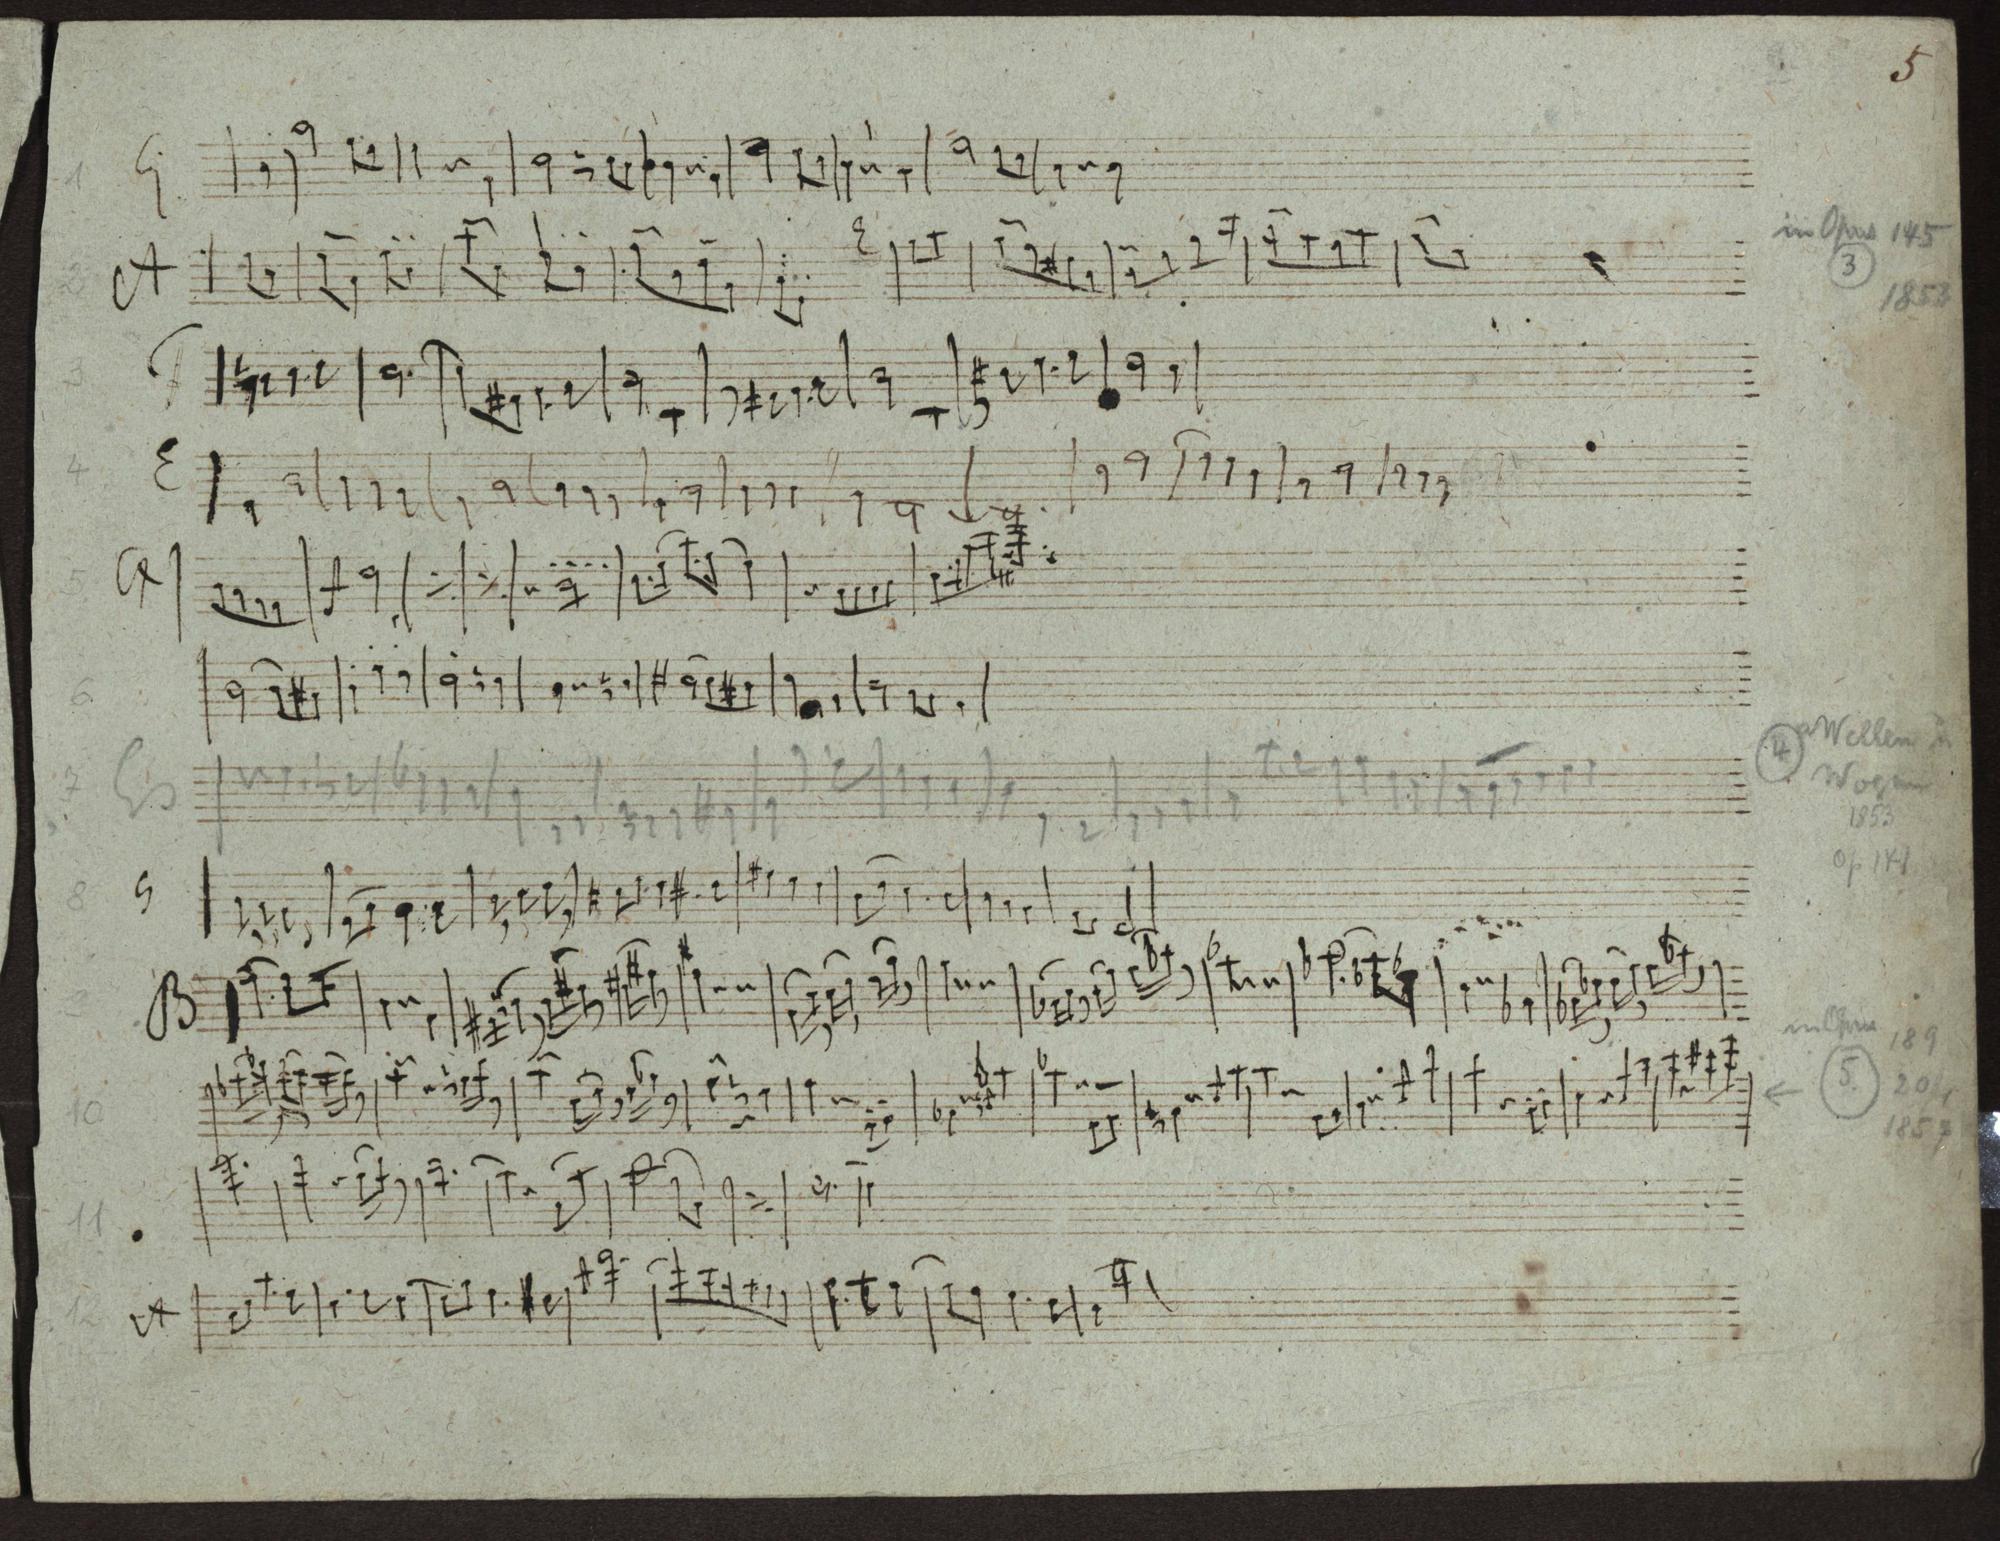 5
1 G.
2 A E
in Opus 145
3
1853
3
4 E
5 A
6
7 Es
4 Wellen u
Wogen
1853
Op 141
8 G
B
in Opus 189
5.
10
1857
11
12 A